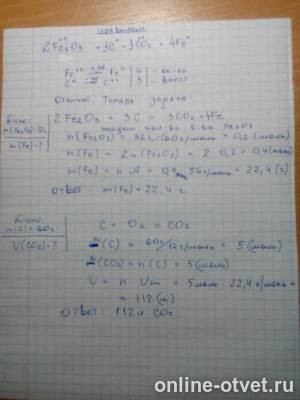 уравниваем
2Fe₂O₃ + 3C = 3CO₂ + 4Fe
Fe⁺³ +3e → Fe⁰ | 4 | - ок-ль
C⁰ -4e → C⁺⁴ | 3 | - восст
Отлично Теперь задача
Дано
m(Fe₂O₃)=32г
m(Fe)-?
2Fe₂O₃ + 3C = 3CO₂ + 4Fe
находим кол во в-ва Fe₂O₃
n(Fe₂O₃) = 32г/160г/моль = 0,2(моль)
n(Fe) = 2n(Fe₂O₃) = 2·0,2 = 0,4(моль)
m(Fe) = n·M = 0,4моль·56г/моль = 22,4(г)
ответ: m(Fe) = 22,4 г
Дано
m(C) = 60г
V(CO₂)-?
C + O₂ = CO₂
n(C) = 60г/12г/моль = 5(моль)
n(CO₂) = n(C) = 5(моль)
V = n·Vm = 5моль·22,4л/моль =
= 112(л)
Ответ: 112л CO₂
online-otvet.ru